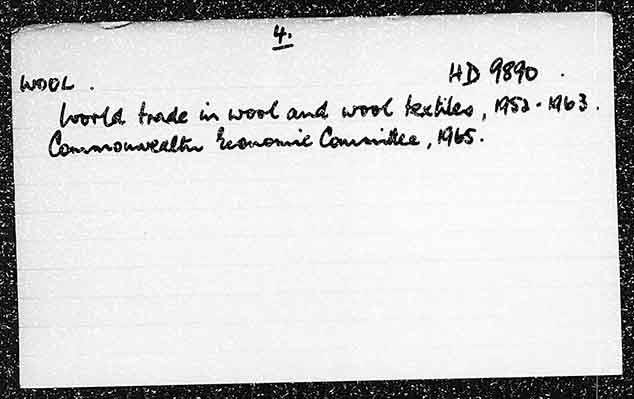 4.
WOOL. HD 9890.
World trade in wool and wool textiles, 1952-1963.
Commonwealth Economic Committee, 1965.